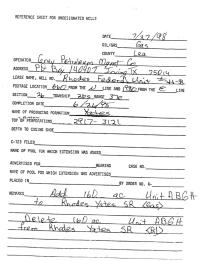 REFERENCE SHEET FOR UNDESIGNATED WELLS
DATE 7/27/98
OIL/GAS Gas
COUNTY Lea
OPERATOR Petroleum Mgmt Co
ADDRESS P.O. Box 140907 Irving TX 75014
LEASE NAME, WELL NO. Rhodes Federal Unit
FOOTAGE LOCATION FROM THE N LINE AND FROM THE E LINE
SECTION TOWNSHIP 20S RANGE 37E
COMPLETION DATE 6/26/95
NAME OF PRODUCING FORMATION Yates
TOP OF PERFORATIONS 2917-3121
DEPTH TO CASING SHOE
C-123 FILED
NAME OF POOL FOR WHICH EXTENSION WAS ASKED
ADVERTISED FOR HEARING CASE NO.
NAME OF POOL FOR WHICH EXTENSION WAS ADVERTISED
PLACED IN BY ORDER NO. R-
REMARKS Add 160 ac Unit ABGH
to Rhodes Yates SR (Gas)
Delete 160 ac Unit ABGH
from Rhodes Yates SR